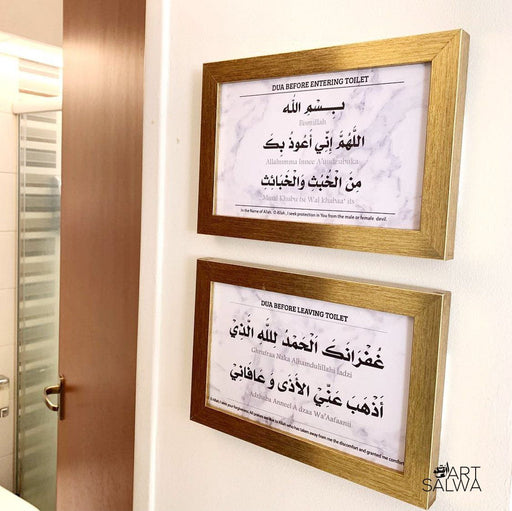 DUA BEFORE ENTERING TOILET
بِسْمِ اللَّه
Bismillah
اللَّهُمَّ إِنِّي أَعُوذُ بِكَ
Allahumma Innee A'uodzubika
مِنَ الْخُبُثِ وَالْخَبَائِثِ
Minal Khubu be Wal khabaa' ils
In the Name of Allah, O Allah, I seek protection in You from the male or female devil.
DUA BEFORE LEAVING TOILET
غُفْرَانَكَ الْحَمْدُ لِلَّهِ الَّذِي
Ghrufraa Naka Alhamdulillahi ladzi
أَذْهَبَ عَنِّيْ الأَذَى وَ عَافَانِيْ
Adzhaba Anneel A dzaa Wa'Aafaanii
O Allah, I seek your forgiveness. All praises are due to Allah who has taken away from me the discomfort and granted me comfort
ART
SALWA